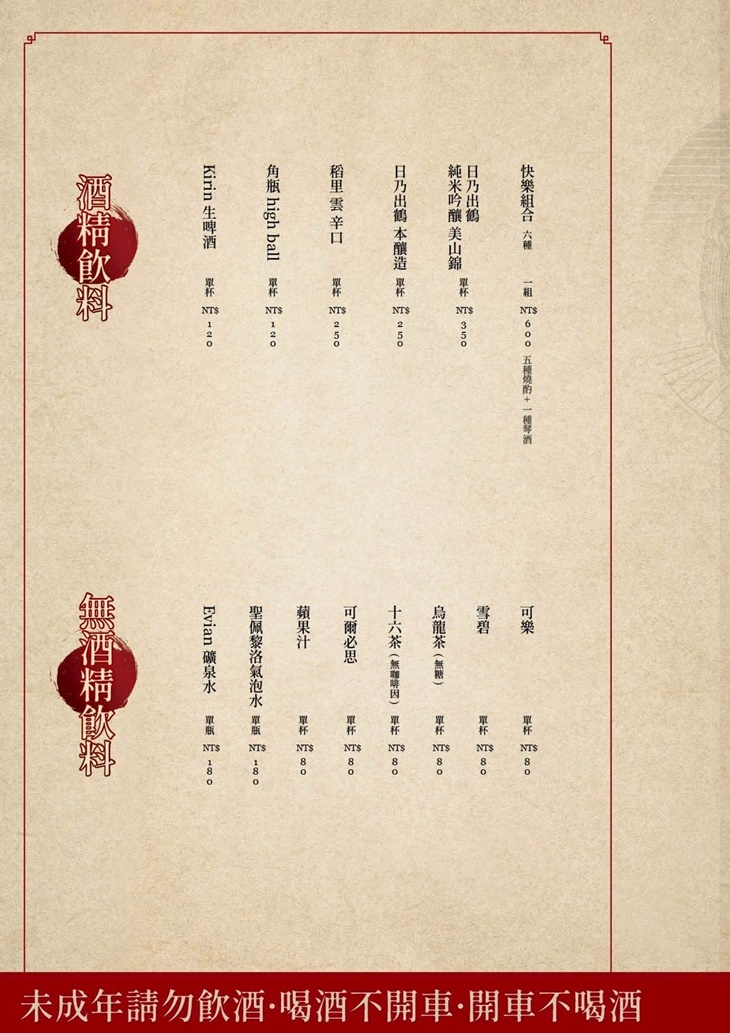 酒精飲料
快樂組合 六種 一組 NT$600 五種燒酌+一種琴酒
日乃出鶴
純米吟釀 美山錦 單杯 NT$350
日乃出鶴 本釀造 單杯 NT$250
稻里 雲 辛口 單杯 NT$250
角瓶 high ball 單杯 NT$120
Kirin 生啤酒 單杯 NT$120
無酒精飲料
可樂 單杯 NT$80
雪碧 單杯 NT$80
烏龍茶(無糖) 單杯 NT$80
十六茶(無咖啡因) 單杯 NT$80
可爾必思 單杯 NT$80
蘋果汁 單杯 NT$80
聖佩黎洛氣泡水 單瓶 NT$180
Evian 礦泉水 單瓶 NT$180
未成年請勿飲酒·喝酒不開車·開車不喝酒